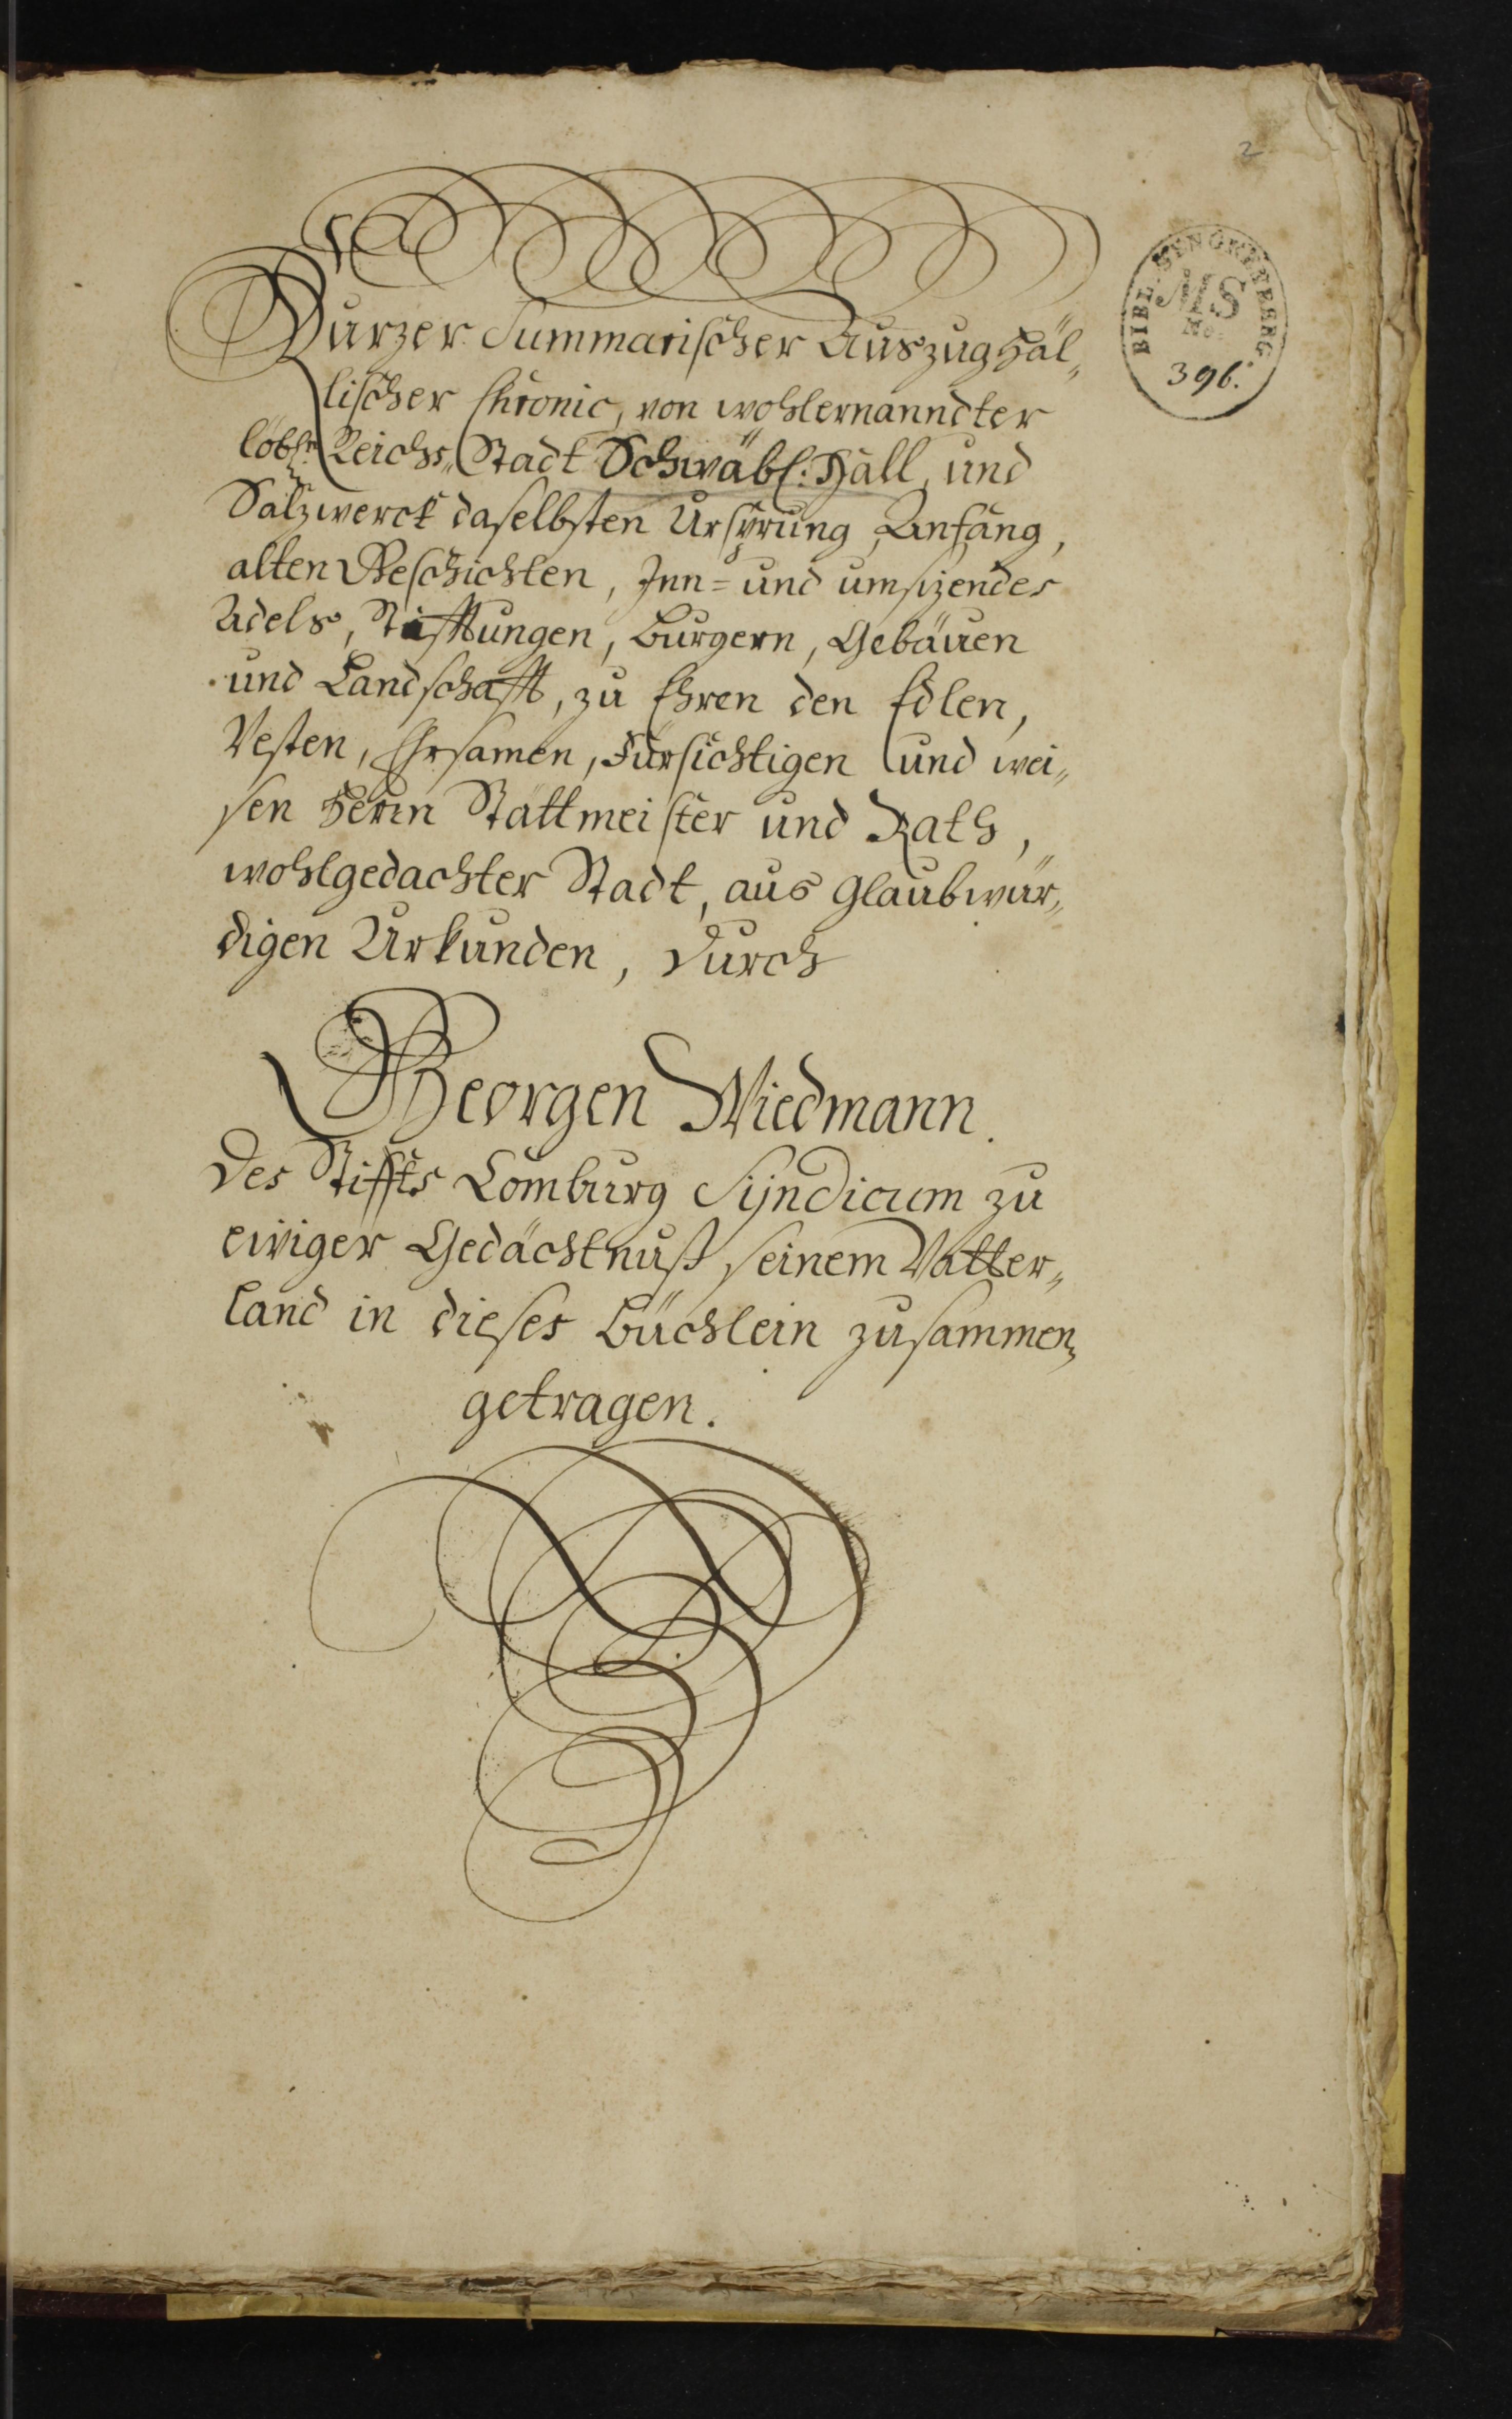 2
BIBL. SENCKENBERG
MS
No.
396.
Kurzer Summarischer Auszug Häl„
lischer Chronic, von wohlernanndter
löbl. Reichs„Stadt Schwäbl: Hall, und
Salzwerck daselbsten Ursprung, Anfang,
alten Geschichten, Inn= und umsizendes
Adels, Stifftungen, Burgern, Gebäuen
und Landschafft, zu Ehren den Edlen,
Vesten, Ehrsamen, Fürsichtigen und wei„
sen Herrn Stättmeister und Rath,
wohlgedachter Stadt, aus Glaubwür„
digen Urkunden, durch
Georgen Wiedmann.
des Stiffts Comburg Syndicum zu
ewiger Gedächtnuß seinem Vatter„
land in dieses Büchlein zusammen„
getragen.